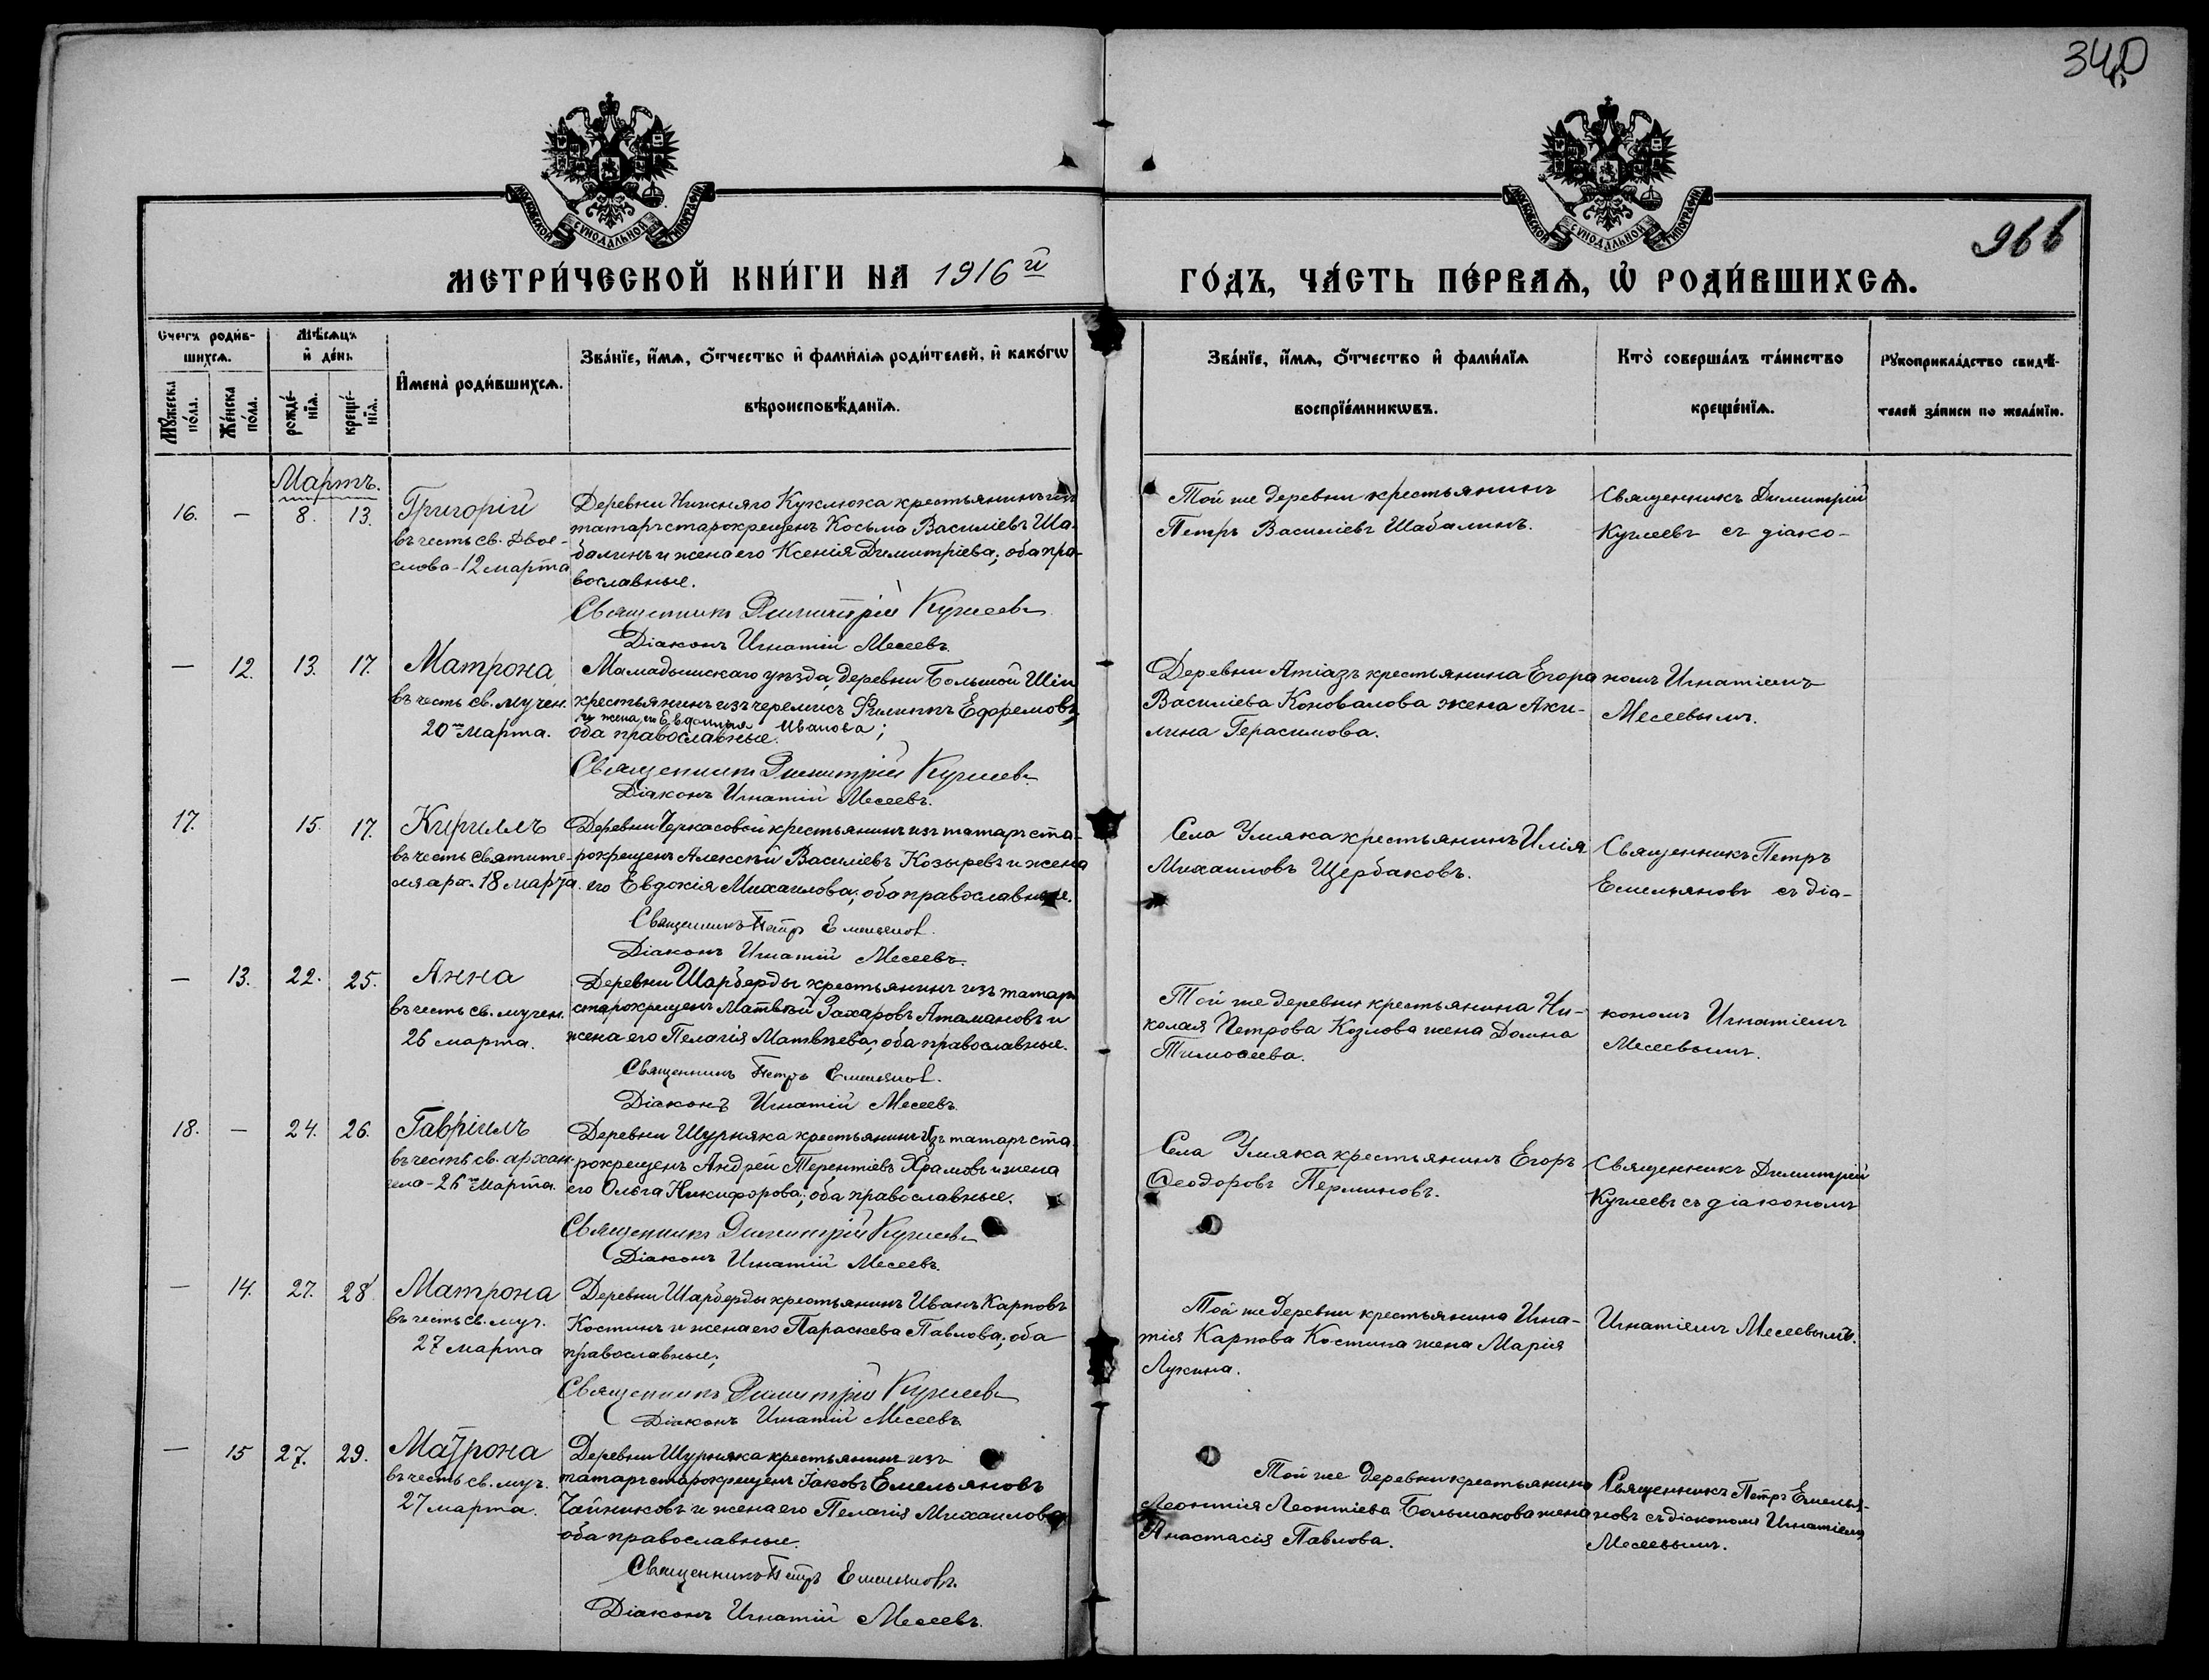 340
966
МОСКОВСКОЙ СѴНОДАЛЬНОЙ ТИПОГРАФИИ
МОСКОВСКОЙ СѴНОДАЛЬНОЙ ТИПОГРАФИИ
МЕТРИ́ЧЕСКОЙ КНИ́ГИ НА 1916 й
ГО́ДЪ, ЧА́СТЬ ПЕ́РВАѦ, Ѽ РОДИ́ВШИХСѦ.
Счетъ роди́в-
шихсѧ.
Мꙋ́жеска по́ла.
Же́нска по́ла.
Мѣ́сѧцъ
и҆ де́нь.
рожде́-
нїѧ.
креще́-
нїѧ.
И҆мена̀ роди́вшихсѧ.
Зва́нїе, и҆́мѧ, ѻ҆́тчество и҆ фами́лїѧ роди́телей, и҆ како́гѡ
вѣроисповѣ́данїѧ.
Зва́нїе, и҆́мѧ, ѻ҆́тчество и҆ фами́лїѧ
воспрїе́мникѡвъ.
Кто̀ соверша́лъ та́инство
креще́нїѧ.
Рꙋкоприкла́дство свидѣ́-
телей за́писи по жела́нїю.
Мартъ.
16. — 8. 13.
Григорій
въ честь св. Двое-
слова - 12 марта
Деревни Нижняго Куклюка крестьянинъ изъ
татаръ старокрещенъ Косьма Василіевъ Ша-
балинъ и жена его Ксенія Димитріева; оба пра-
вославные.
Священникъ Димитрій Кугиеевъ
Діаконъ Игнатій Месеевъ.
Той же деревни крестьянинъ
Петръ Василіевъ Шабалинъ.
Священникъ Димитрій
съ діако-
— 12. 13. 17.
Матрона
въ честь св. мучен.
20го марта.
Мамадышскаго уѣзда, деревни Большой Шіи
крестьянинъ изъ черемисъ Филиппъ Ефремовъ
и жена его Евдокия Иванова;
оба православные.
Священникъ Димитрій
Діаконъ Игнатій Месеевъ.
Деревни Атіазъ крестьянина Егора
Василіева Коновалова жена Аки-
лина Герасимова.
номъ Игнатіемъ
Месеевымъ.
17. 15. 17.
Кириллъ
въ честь Святите-
ля арх. 18 марта.
Деревни Черкасовой крестьянинъ изъ татаръ ста-
рокрещенъ Алексѣй Василіевъ Козыревъ и жена
его Евдокія Михаилова; оба православные.
Священникъ Петръ Емельянов.
Діаконъ Игнатій Месеевъ.
Села Умяка крестьянинъ Илія
Михаиловъ Щербаковъ.
Священникъ Петръ
Емельяновъ съ діа-
— 13. 22. 25.
Анна
въ честь св. мучен.
26 марта.
Деревни Шарберды крестьянинъ изъ татаръ
старокрещенъ Матвѣй Захаровъ Атамановъ и
жена его Пелагія Матвѣева; оба православные.
Священникъ Петръ Емельянов.
Діаконъ Игнатій Месеевъ.
Той же деревни крестьянина Ни-
колая Петрова Козлова жена Домна
Тимоѳеева.
кономъ Игнатіемъ
Месеевымъ.
18. — 24. 26.
Гавріилъ
въ честь св. архан-
гела - 26го Марта.
Деревни Шурняка крестьянинъ изъ татаръ ста-
рокрещенъ Андрей Терентіевъ Храмовъ и жена
его Ольга Никифорова; оба православные.
Священникъ Димитрій
Діаконъ Игнатій Месеевъ.
Села Умяка крестьянинъ Егоръ
Ѳеодоровъ Перминовъ.
Священникъ Димитрий
съ діакономъ
— 14. 27. 28
Матрона
въ честь св. муч.
27 марта
Деревни Шарберды крестьянинъ Иванъ Карповъ
Костинъ и жена его Параскева Павлова; оба
православные;
Священникъ Димитрій
Діаконъ Игнатій Месеевъ.
Той же деревни крестьянина Игна-
тія Карпова Костина жена Марія
Лукина.
Игнатіемъ Месеевымъ.
— 15 27. 29.
Матрона
въ честь св. муч.
27 марта.
Деревни Шурняка крестьянинъ изъ
татаръ старокрещенъ Іаковъ Емельяновъ
Чайниковъ и жена его Пелагія Михаилова
оба православные.
Священникъ Петръ Емельяновъ.
Діаконъ Игнатій Месеевъ.
Той же деревни крестьянина
Леонтія Леонтіева Большакова жена
Анастасія Павлова.
Священникъ Петръ Емелья-
новъ съ діакономъ Игнатіемъ
Месеевымъ.